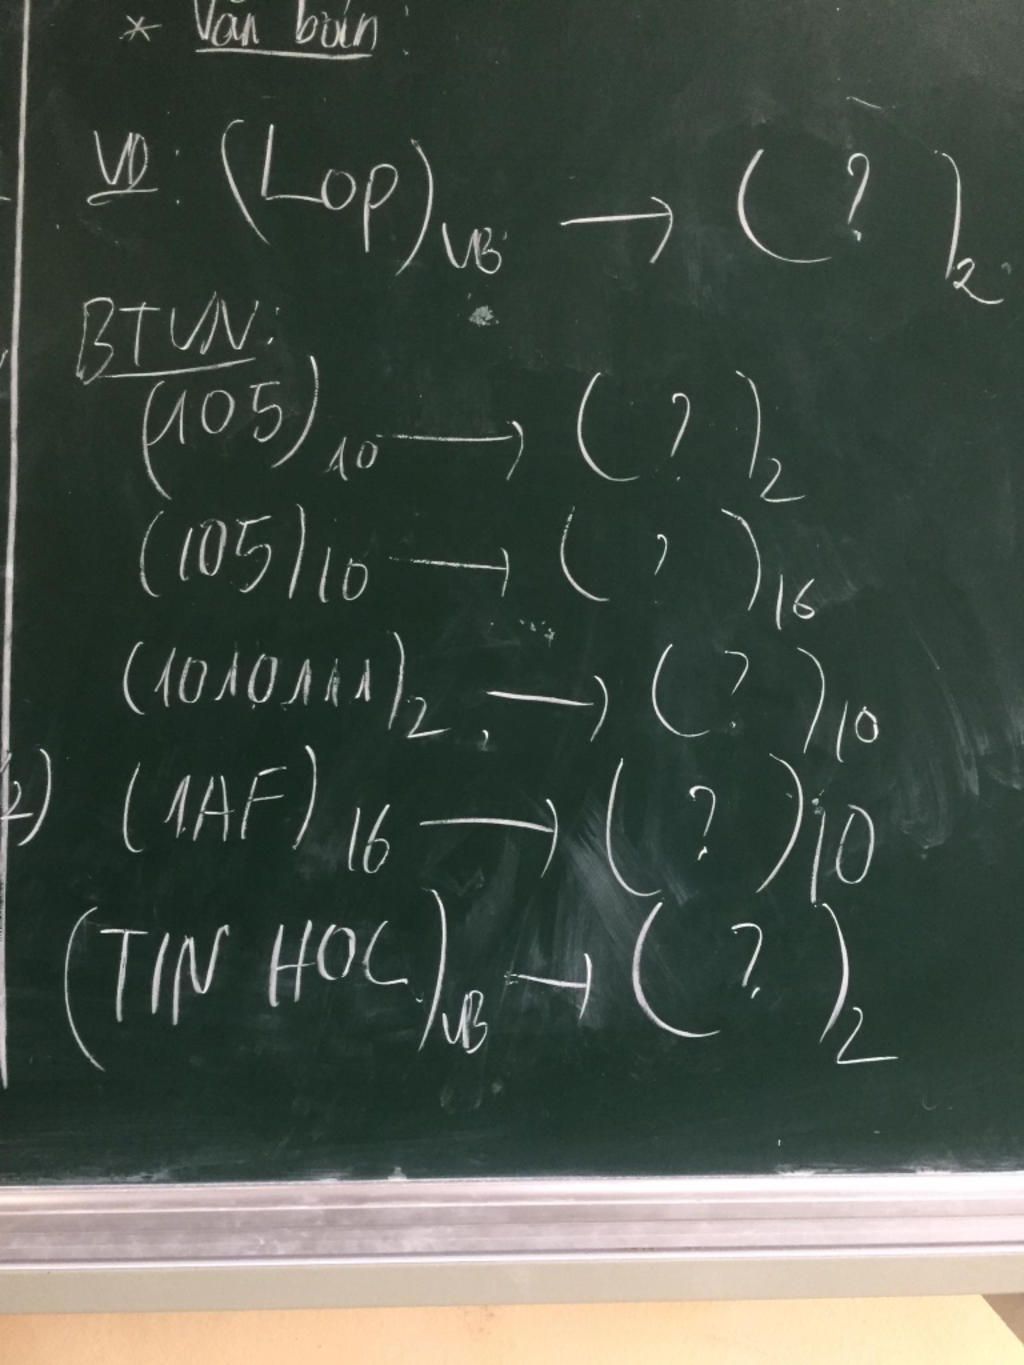 * Văn bản:
VD: (Lop)VB → ( ? )2
BTVN:
(105)10 → ( ? )2
(105)10 → ( ? )16
(1010111)2 → ( ? )10
2) (1AF)16 → ( ? )10
(TIN HOC)VB → ( ? )2